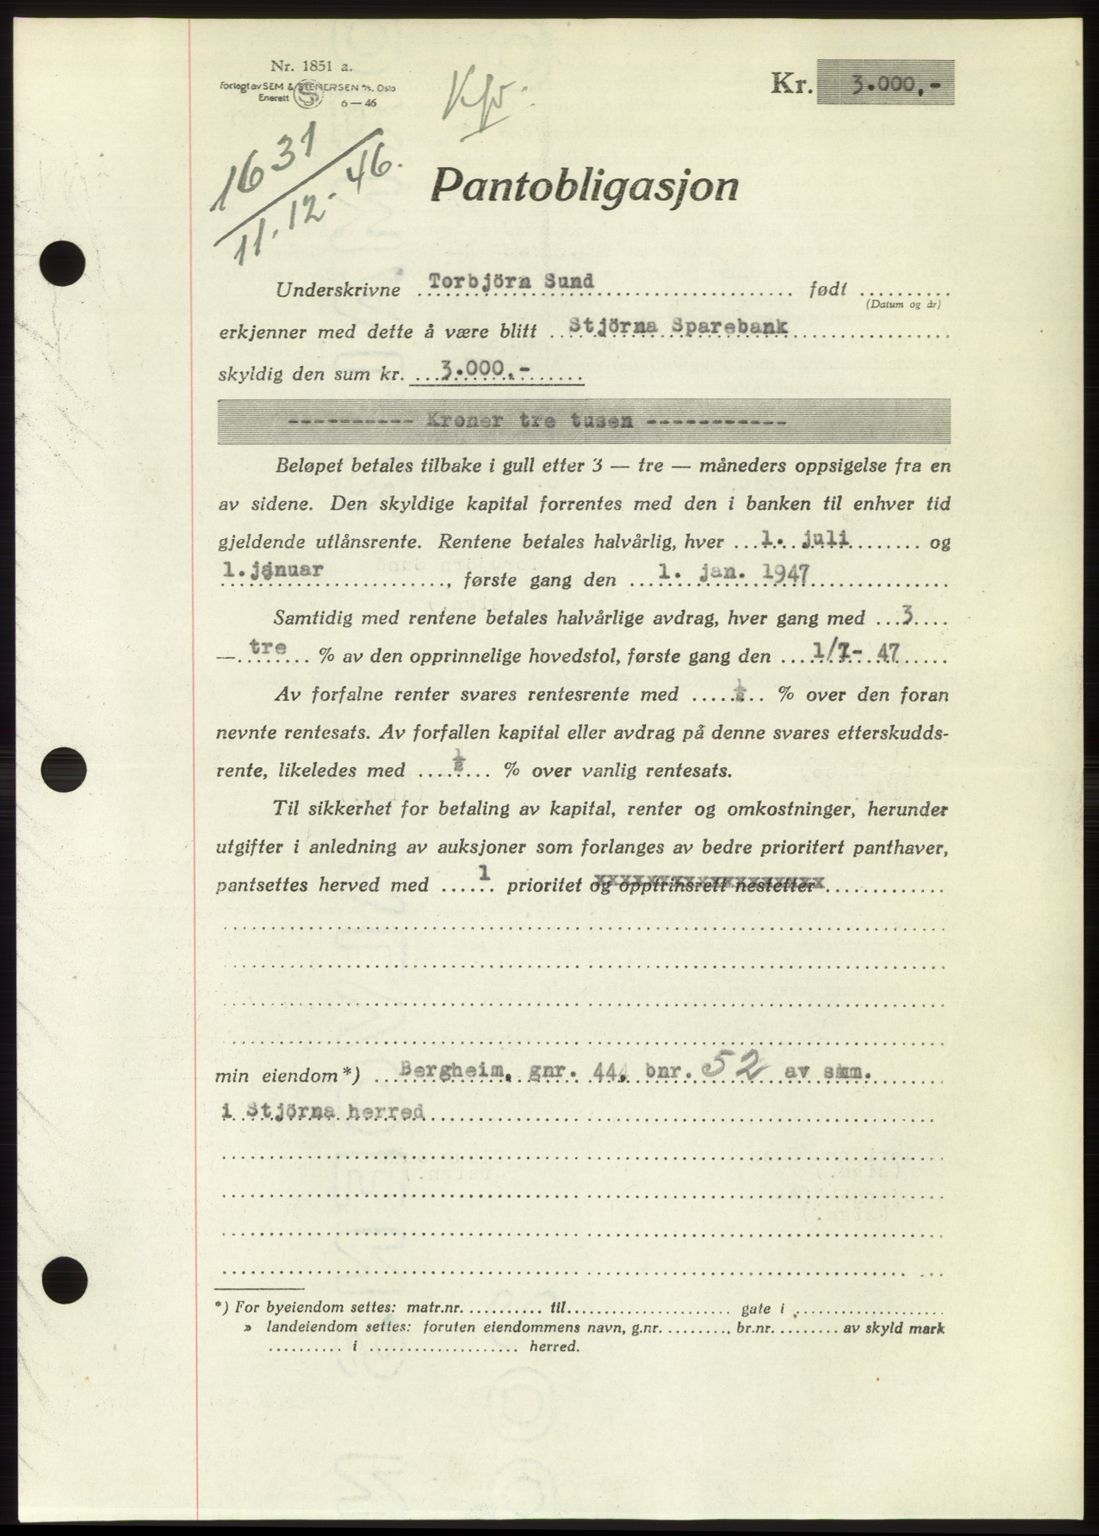 Nr. 1851 a.
Forlagt av SEM & STENERSEN A/S, Oslo
Enerett 6 — 46
Kr. 3.000,-
1631
11.12-46.
Pantobligasjon
Underskrivne Torbjörn Sund født
(Datum og år)
erkjenner med dette å være blitt Stjörna Sparebank
skyldig den sum kr. 3.000,-
---------- Kroner tre tusen -----------
Beløpet betales tilbake i gull etter 3 — tre — måneders oppsigelse fra en
av sidene. Den skyldige kapital forrentes med den i banken til enhver tid
gjeldende utlånsrente. Rentene betales halvårlig, hver 1. juli og
1.januar, første gang den 1. jan. 1947
Samtidig med rentene betales halvårlige avdrag, hver gang med 3
— tre % av den opprinnelige hovedstol, første gang den 1/7- 47
Av forfalne renter svares rentesrente med ½ % over den foran
nevnte rentesats. Av forfallen kapital eller avdrag på denne svares etterskudds-
rente, likeledes med ½ % over vanlig rentesats.
Til sikkerhet for betaling av kapital, renter og omkostninger, herunder
utgifter i anledning av auksjoner som forlanges av bedre prioritert panthaver,
pantsettes herved med 1 prioritet og opptrinsrett nestetter
min eiendom*) Bergheim, gnr. 44, bnr. 52 av smm.
i Stjörna herred
*) For byeiendom settes: matr.nr. .......... til ....................... gate i ....................
» landeiendom settes: foruten eiendommens navn, g.nr. ........., br.nr. ......... av skyld mark
.......... i .................... herred.